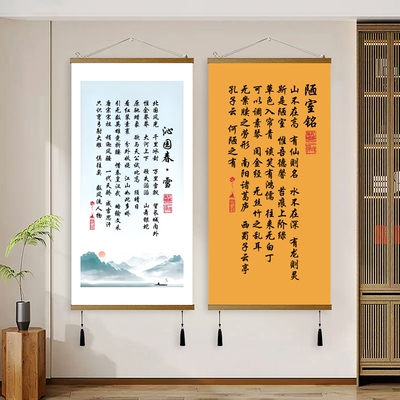 沁园春·雪
北国风光 千里冰封 万里雪飘 望长城内外
惟余莽莽 大河上下 顿失滔滔 山舞银蛇
原驰蜡象 欲与天公试比高 须晴日
看红装素裹 分外妖娆 江山如此多娇
引无数英雄竞折腰 惜秦皇汉武 略输文采
唐宗宋祖 稍逊风骚 一代天骄 成吉思汗
只识弯弓射大雕 俱往矣 数风流人物
陋室铭
山不在高 有仙则名 水不在深 有龙则灵
斯是陋室 惟吾德馨 苔痕上阶绿
草色入帘青 谈笑有鸿儒 往来无白丁
可以调素琴 阅金经 无丝竹之乱耳
无案牍之劳形 南阳诸葛庐 西蜀子云亭
孔子云 何陋之有